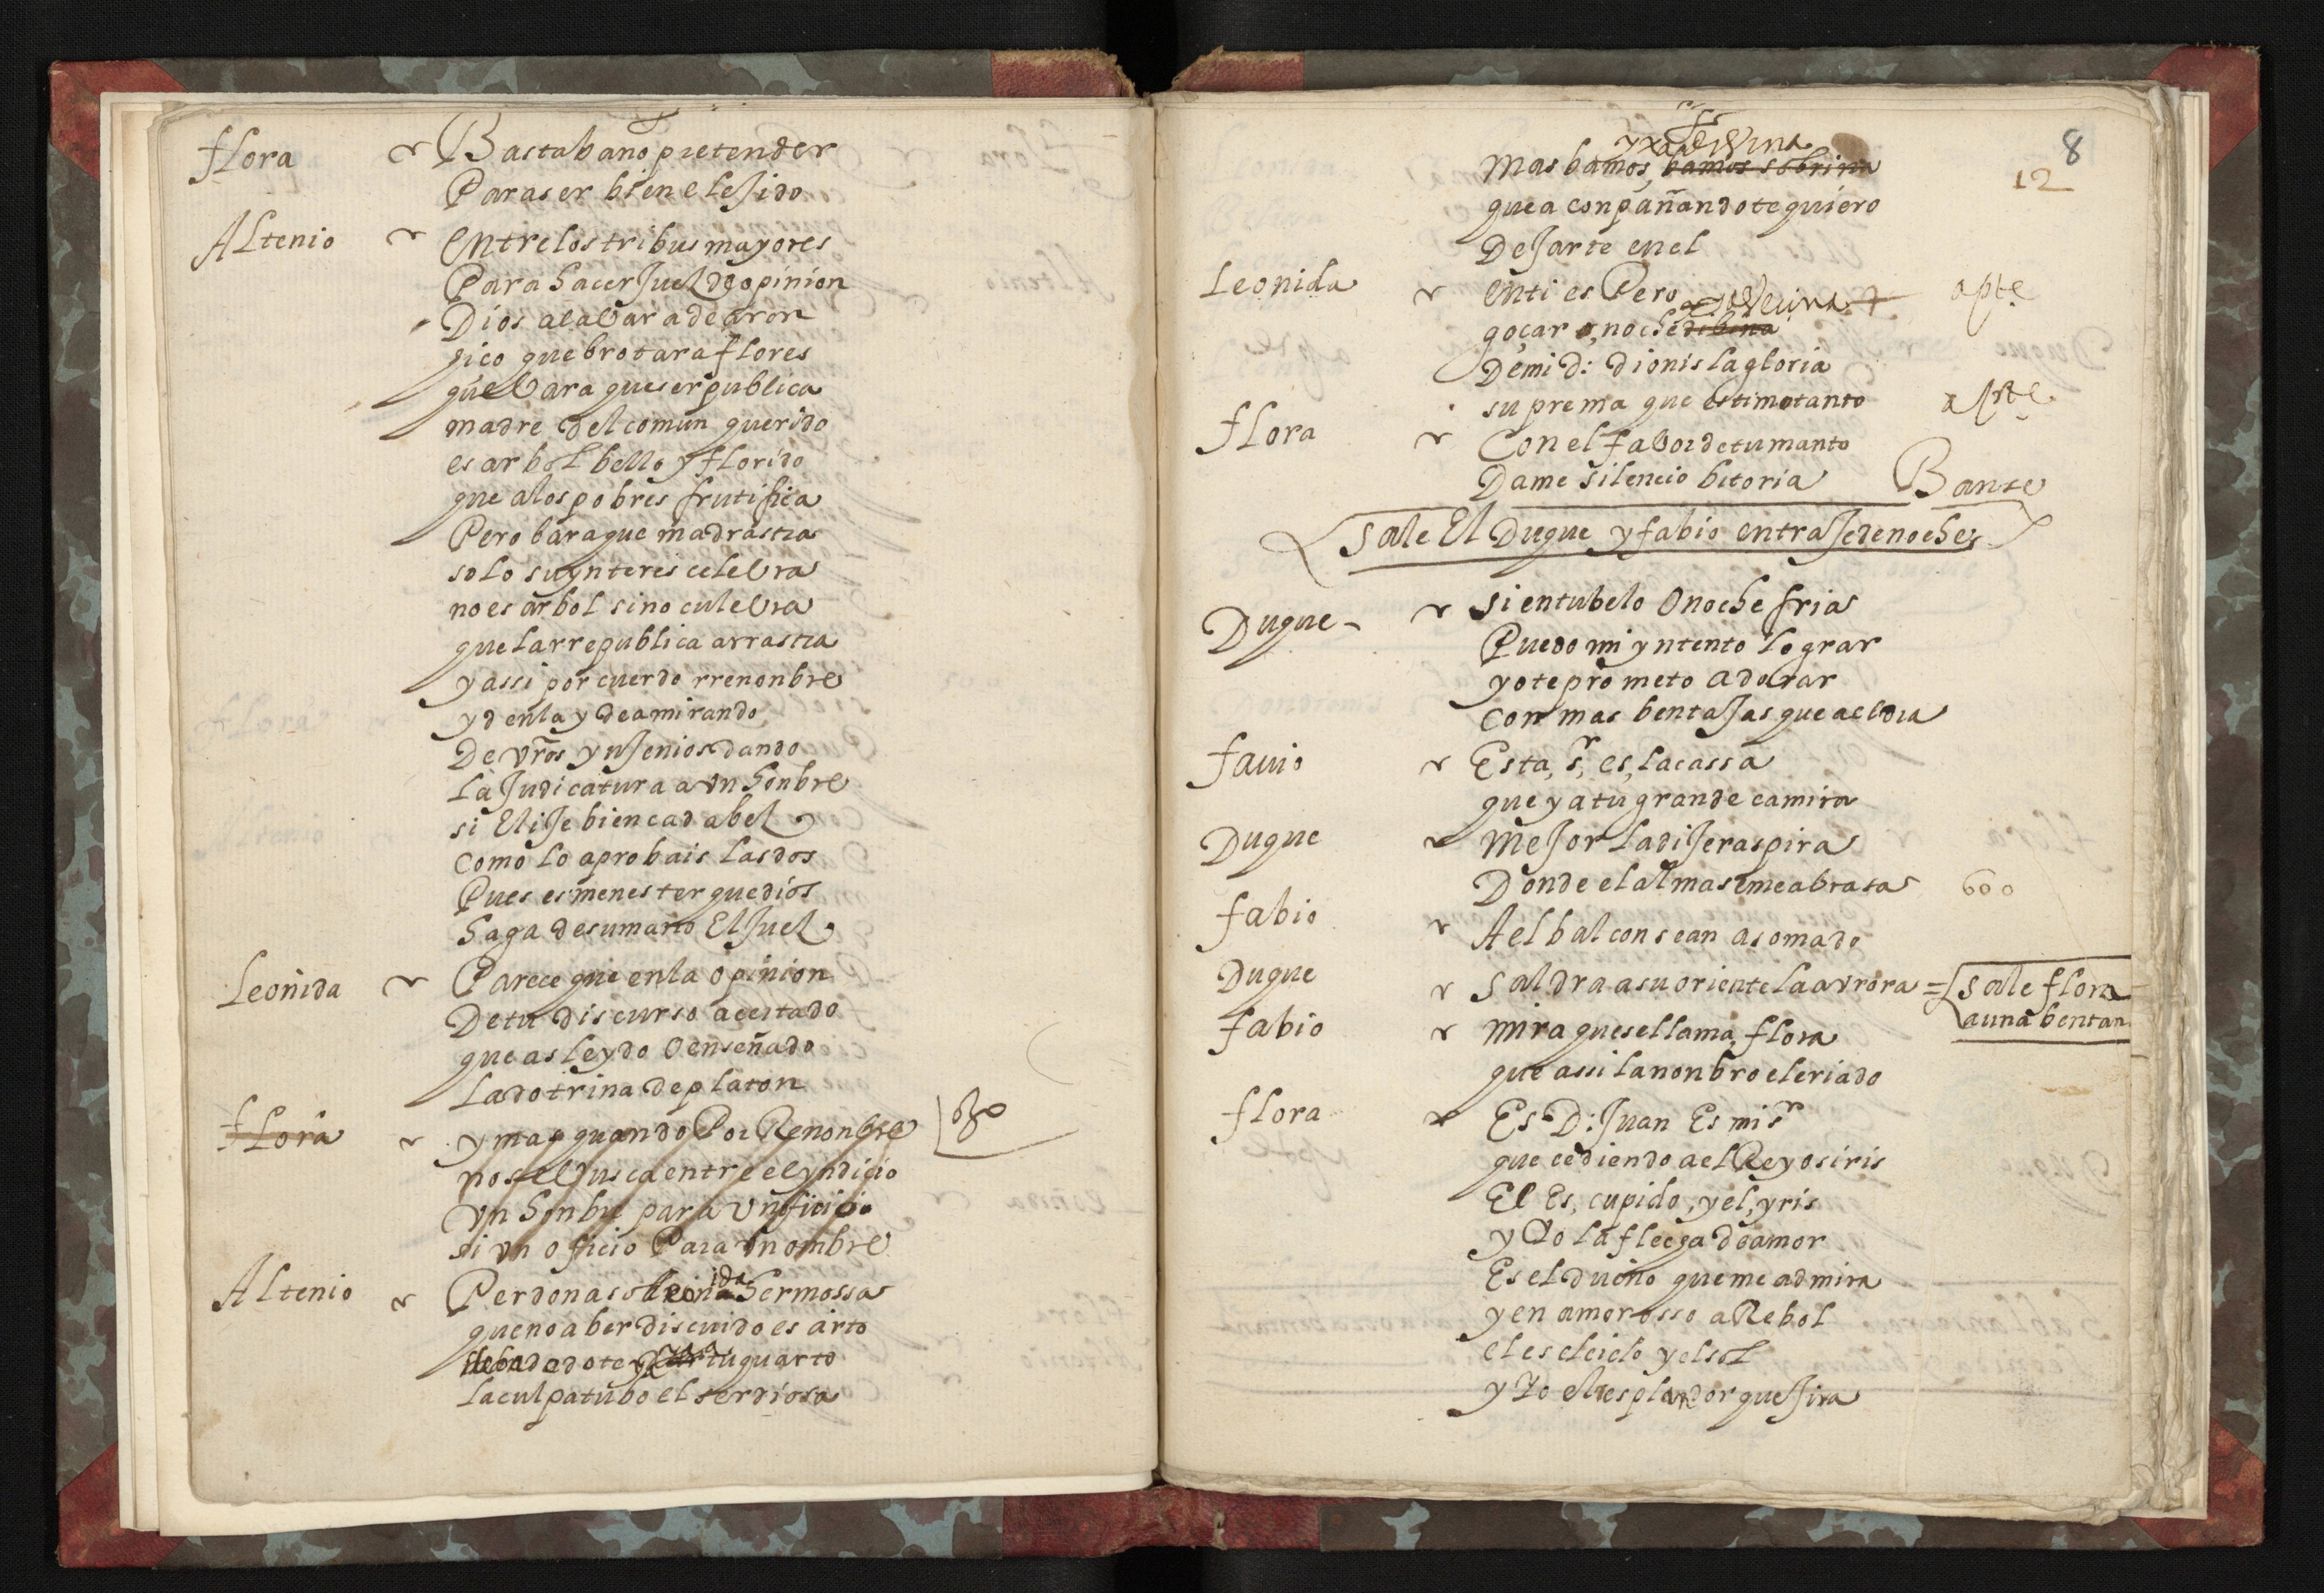 flora Bastabano pretender
Para ser bien elejido
Altenio entre los tribus mayores
Para hacer juez de opinion
Dios alabar a de aron
hiço que brotara flores
que bara que ser publica
madre del comun querido
es arbol bello y florido
que a los pobres frutifica
Pero bara que madrastra
solo su ynteres celebra
no es arbol sino culebra
que la rrepublica arrastra
y assi por cuerdo rrenonbre
yd en la ydea mirando
De vros ynjenios dando
la judicatura a vn honbre
si elije bien cada bez
como lo aprobais las dos
Pues es menester que dios
haga de su mano El juez
Leonida Parece que en la opinion
De tu discurso acertado
que as leydo o enseñado
la dotrina de platon
flora y mas quando Por Renonbre
no se busca entre el yndicio
vn honbre para vn oficio
si vn oficio Para vn ombre
no
Altenio Perdona leonida hermossa
que no aber discuido es arto
tu quarto
la culpa tubo el ser diosa
8
12
mas bamos, bamos sobrina
que aconpañandote quiero
Dejarte en el
Leonida en ti espero apte
goçar o, noche dibina
De mi d: dionis la gloria
suprema que estimo tanto
apte
flora Con el fabor de tu manto
Dame silencio bitoria Banse
Sale El Duque y fabio en traje de noche
Duque si en tu belo o noche fria
Puedo mi yntento lograr
yo te prometo adorar
con mas bentajas que a el dia
fauio Esta, sr, es, la cassa
que ya tu grandeça mira
Duque mejor la dijeras pira
Donde el alma se me abrasa 600
fabio A el balcon se an asomado
Duque Saldra a su oriente la avrora = Sale flora
a una bentan
fabio mira que se llama, flora
que assi la nonbro el criado
flora Es D: Juan Es mi sr
que cediendo a el Rey osiris
El Es, cupido, y el, yris
y Yo la flecha de amor
Es el dueño que me admira
y en amorosso aRebol
el es el cielo y el sol
y Yo el resplandor que jira